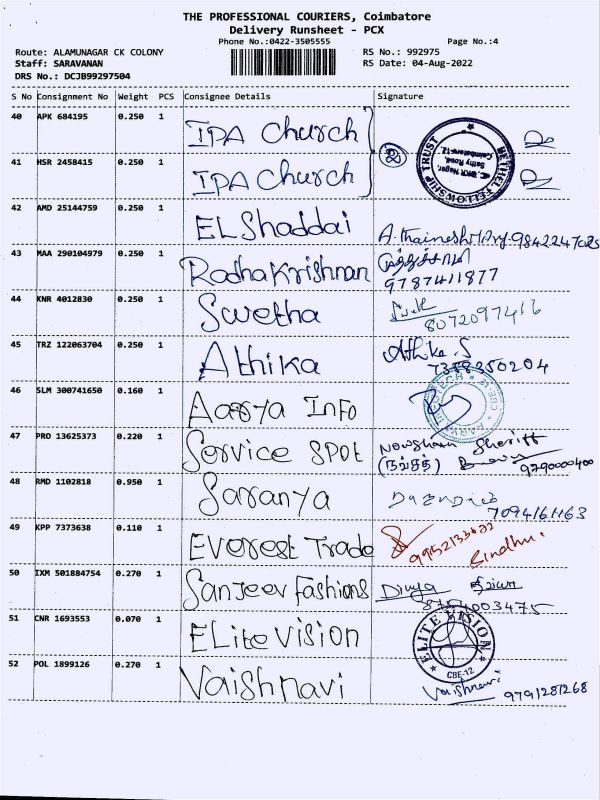 THE PROFESSIONAL COURIERS, Coimbatore
Delivery Runsheet - PCX
Phone No.:0422-3505555 Page No.:4
Route: ALAMUNAGAR CK COLONY RS No.: 992975
Staff: SARAVANAN RS Date: 04-Aug-2022
DRS No.: DCJB99297504
S No Consignment No Weight PCS Consignee Details Signature
40 APK 684195 0.250 1 IPA Church
41 HSR 2458415 0.250 1 IPA Church
BETHEL FELLOWSHIP TRUST
Sathy Road,
42 AMD 25144759 0.250 1 EL Shaddai
43 MAA 290104979 0.250 1 Radhakrishnan
9787411877
44 KNR 4012830 0.250 1 Swetha
8072097416
45 TRZ 122063704 0.250 1 Athika Athika.S
7358250204
46 SLM 300741650 0.160 1 Aarya Info
47 PRO 13625373 0.220 1 Service SPOt Sheriff
9790000400
48 RMD 1102818 0.950 1 Saranya
7094161163
49 KPP 7373638 0.110 1 Everest Trade 9952133622 Sindhu
50 IXM 501884754 0.270 1 Sanjeev Fashions Divya
8754003475
51 CNR 1693553 0.070 1 ELite vision
ELITE VISION
CBE-12
52 POL 1899126 0.270 1 Vaishnavi Vaishnavi 9791281268